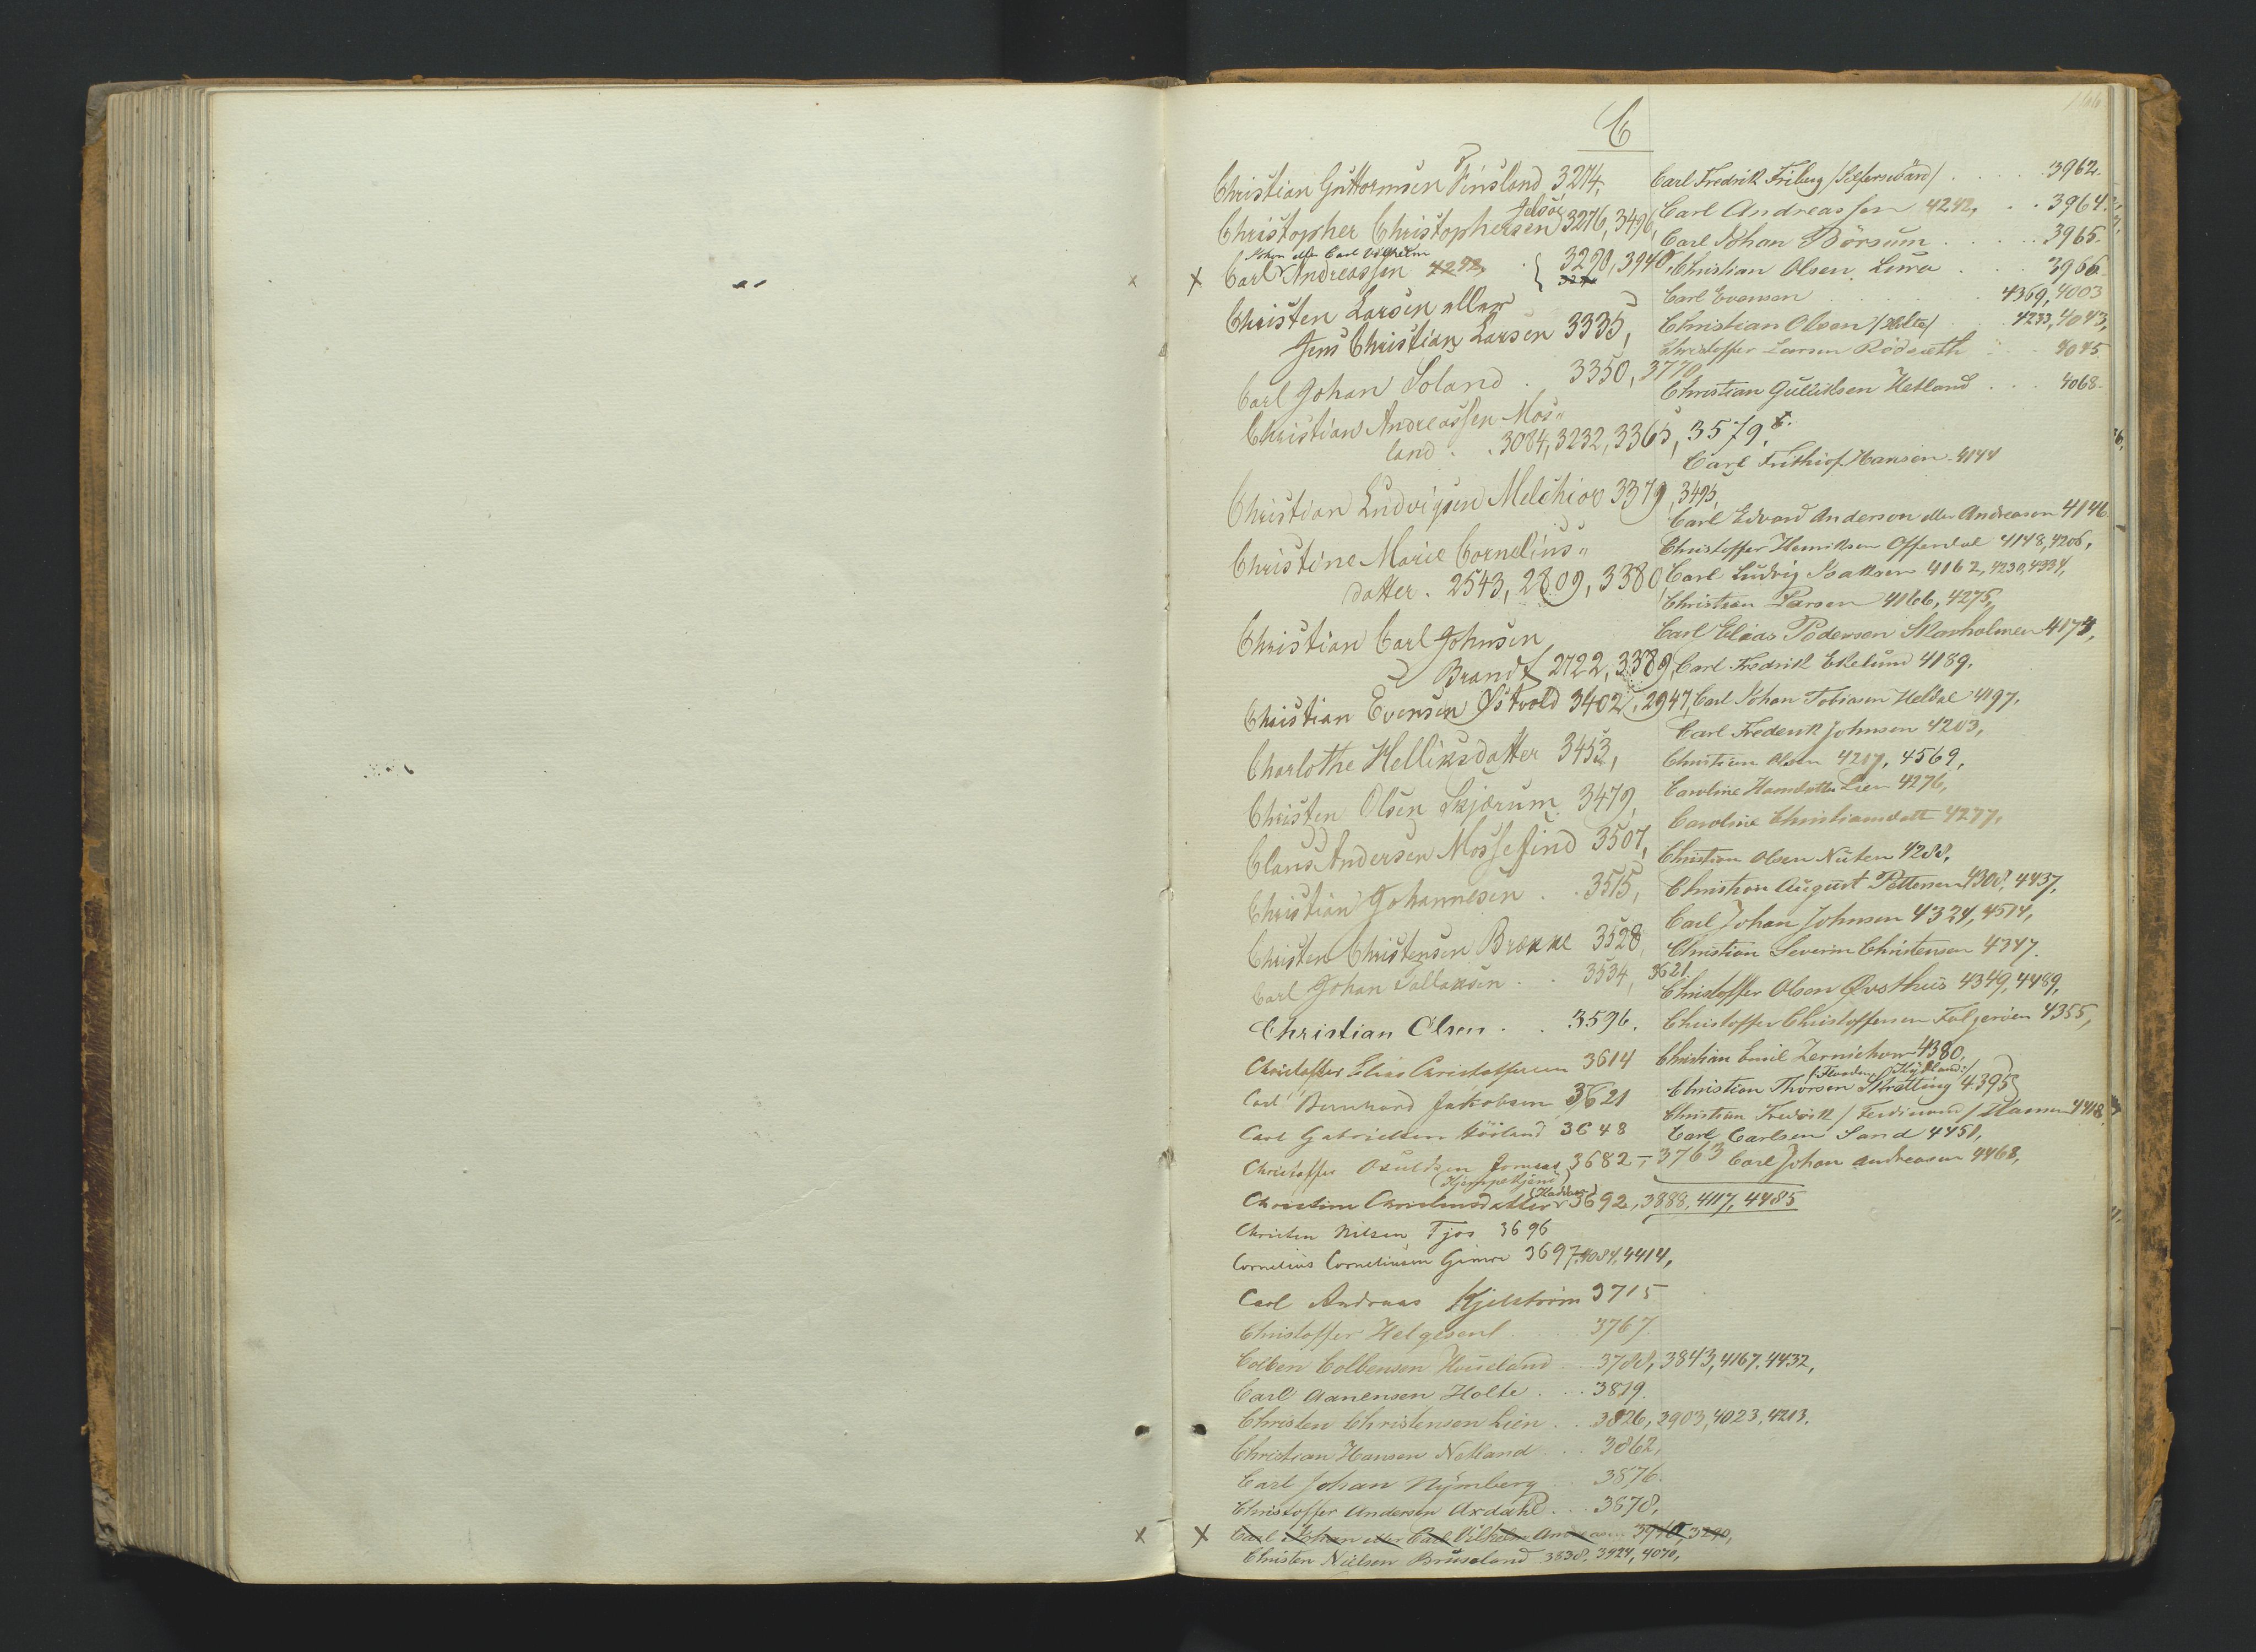 166
C
Christian Guttormsen Finsland 3274,
Christopher Christophersen 3276, 3496,
Johan eller Carl Vilhelm
x X Carl Andreassen 4242, . { 3290, 3940,
Christen Larsen eller
Jens Christian Larsen 3335,
Carl Johan Soland . 3350, 3770,
Christian Andreassen Mos„
land . . 3084, 3232, 3365, 3579,
Christian Ludvigsen Melchior 3379, 3495,
Christine Marie Cornelius„
datter . 2543, 2809, 3380,
Christian Carl Johnsen
Brandt 2722, 3389,
Christian Evensen Østvold 3402, 2947,
Charlothe Helliksdatter 3453,
Christen Olsen Skjørum 3479,
Claus Andersen Mossefind 3507,
Christian Johannesen . . 3515,
Christen Christensen Brække 3528,
Carl Johan Sallaksen . . 3534, 3621.
Christian Olsen . . 3596.
Christoffer Elias Christoffersen 3614
Carl Bernhard Jakobsen 3621
Carl Gabrielsen Höiland 3648
Christoffer Osuldsen 3682 -, 3763
(Hjempekjens)
Christine Christensdatter 3692, 3888, 4117, 4485
Christen Nilsen Tjos 3696
Cornelius Corneliusen Gimre 3697, 4084, 4414,
Carl Andreas Kjelström 3715
Christoffer Helgesen . . . 3767.
Colben Colbensen Houeland . . 3788, 3843, 4167, 4432,
Carl Aanensen Holte . . . 3819.
Christen Christensen Lien . . 3826, 3903, 4023, 4213,
Christian Hansen Netland . . . 3862,
Carl Johan Nymberg . . 3876.
Christoffer Andersen Axdahl . . . 3878,
x X Carl Johan eller Carl Vilhelm Andreasen 3940, 3290,
Christen Nielsen Bruseland 3838, 3924, 4070,
Carl Fredrik Friberg /Silfersvärd/ . . . . 3962.
Carl Andreassen 4242, . . 3964.
Carl Johan Börsum . . . . 3965.
Christian Olsen Lura . . . 3966.
Carl Evensen . . . 4369, 4003
Christian Olsen /Holte/ . . 4233, 4043,
Christoffer Larsen Rödsæth . . . 4045.
Christian Gulliksen Hetland . . . 4068.
Carl Frithiof Hansen . 4144
Carl Edvard Anderson eller Andreasen 4146
Christoffer Henriksen Offerdal 4148, 4206,
Carl Ludvig Isaksen 4162, 4230, 4334,
Christian Larsen 4166, 4275,
Carl Elias Pedersen Skarholmen 4174,
Carl Fredrik Ekelund 4189.
Carl Johan Tobiasen Heldal 4197.
Carl Frederik Johnsen 4203,
Christian Olsen 4217, 4569,
Caroline Hansdatter Lien 4276,
Caroline Christiansdatt 4277,
Christian Olsen Nuten 4288,
Christian August Pettersen 4308, 4437,
Carl Johan Johnsen 4324, 4514,
Christian Severin Christensen 4347.
Christoffer Olsen Qvsthus 4349, 4489,
Christoffer Christoffersen Falgeröen 4355,
Christian Emil Zernichow 4380,
Christian Thorsen Skrætting 4395
Christian Fredrik /Ferdinand/ Hansen 4418,
Carl Carlsen Sand 4451,
Carl Johan Andreasen 4468,